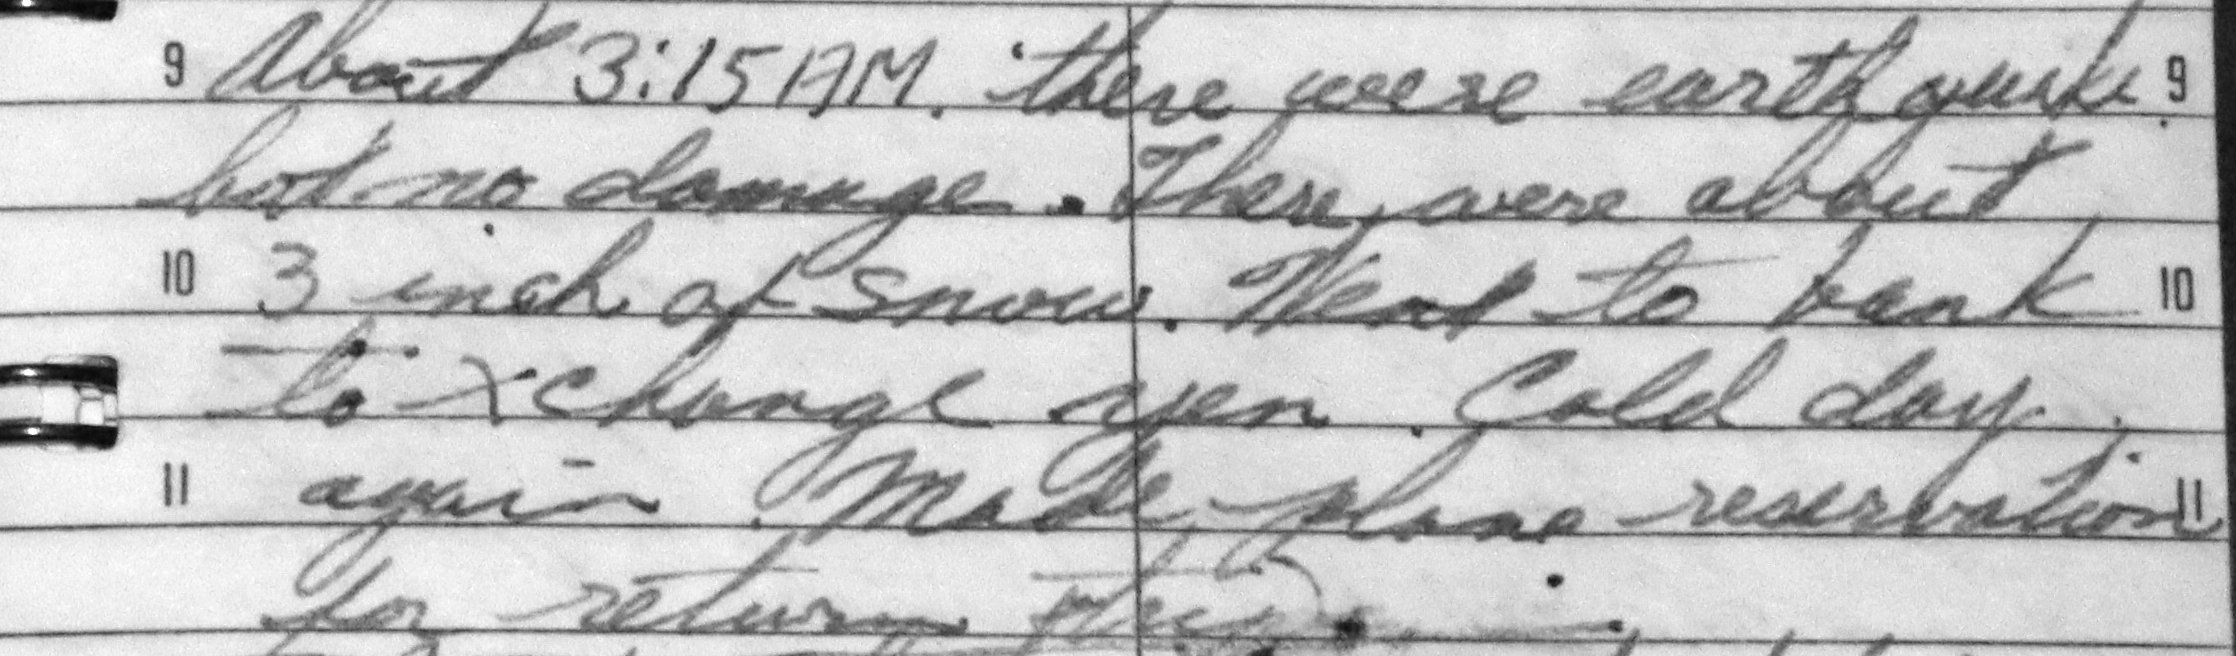 9 About 3:15 AM. there were earthquake 9
but no damage. There were about
10 3 inch of snow. Went to bank 10
to xchange yen. Cold day.
11 again. Made plane reservation 11
for return trip